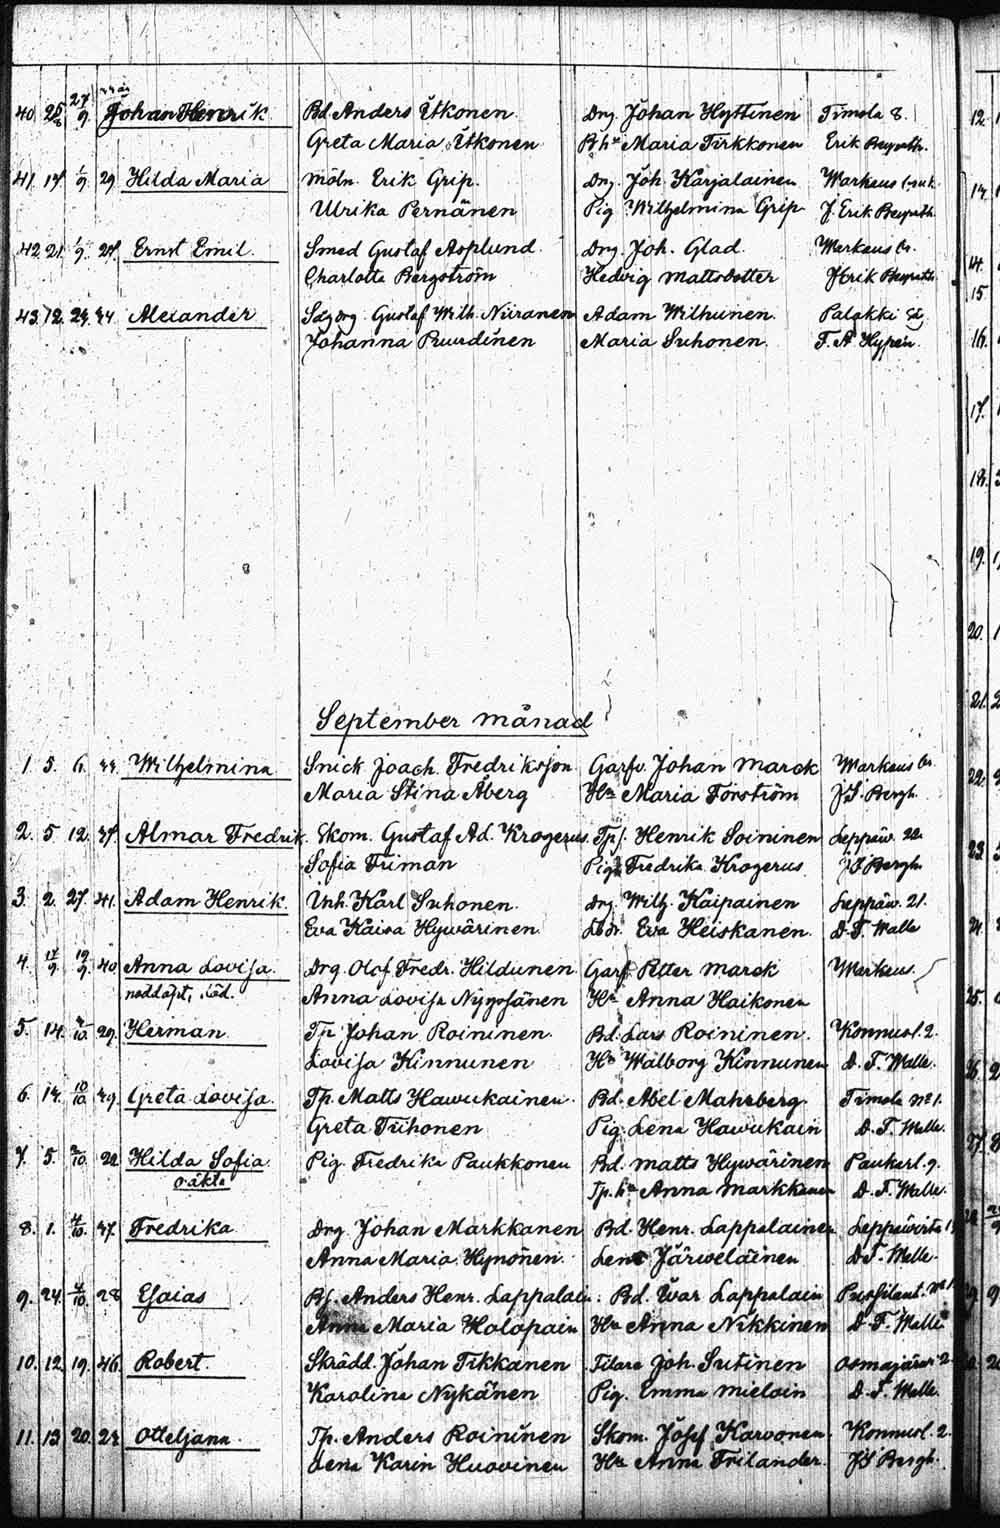 40. 25/8 27/9 Johan Henrik Bd. Anders Itkonen Drg Johan Hyttinen Timola 8.
Greta Maria Itkonen Bhu Maria Tirkkonen Erik
41. 17. 1/9 29 Hilda Maria Möln. Erik Grip. Drg. Joh. Karjalainen Warkaus bruk
Ulrika Pernänen Pig Wilhelmina Grip J. Erik
42. 21. 1/9 Ernst Emil Smed Gustaf Asplund Drg. Joh. Glad Warkaus br.
Charlotta Bergström Hedvig Mattsdotter J. Erik
43. 12. 24. 44 Alexander Gustaf Wilh. Niiranen Adam Wilhunen Palokki
Johanna Puurdinen Maria Suhonen. F. A. Hypén.
September månad
1. 5. 6. 44 Wilhelmina Snick. Joach. Fredriksson Garfv. Johan Marck Warkaus br.
Maria Stina Åberg Hu Maria Forström J S Bergh.
2. 5. 12. 34. Almar Fredrik. Ekom. Gustaf Ad. Krogerus Tpf. Henrik Soininen Leppäw. 22.
Sofia Friman Pig. Fredrika Krogerus J S Bergh.
3. 2. 27. 41. Adam Henrik. Inh. Karl Suhonen. Drg. Wilh. Kaipainen Leppäw. 21.
Eva Kaisa Hywärinen. Eva Heiskanen. D. F. Walle
4. 17/9 19/9 40 Anna Lovisa. Drg. Olof Fredr. Hildunen Garf. Petter Marck Warkaus.
nöddöpt, Anna Lovisa Nyyssönen Hu Anna Haikonen
5. 14. 29. Herman. Tp Johan Roininen. Bd. Lars Roininen. Konnusl. 2.
Lovisa Kinnunen Hu Walborg Kinnunen D. F. Walle.
6. 14. 10/10 39. Greta Lovisa. Tp. Matts Hawukainen. Bd. Abel Mahrberg. Timola No 1.
Greta Tiihonen Pig. Lena Hawukain D. F. Walle.
7. 5. 22 Hilda Sofia Pig. Fredrika Paukkonen Bd. Matts Hywärinen Paukarl. 9.
oäkta Tp. hu Anna Markkanen D. F. Walle.
8. 1. 37. Fredrika Drg Johan Markkanen Bd. Henr. Lappalainen Leppäwirta
Anna Maria Hynönen. Lena Järweläinen D. F. Walle.
9. 24. 28 Esaias Bf. Anders Henr. Lappalain. Bd. Iwar Lappalain
Anna Maria Holopain Hu Anna Nikkinen D. F. Walle
10. 12. 19. 46. Robert. Skrädd. Johan Tikkanen Joh. Sutinen Osmajärwi 2.
Karolina Nykänen Pig. Emma Mieloin D. F. Walle.
11. 13 20. Otteljana. Tp. Anders Roininen Skom. Josef Karvonen. Konnusl. 2.
Lena Karin Huovinen Hu Anna Frilander. J S Bergh.
12.
14.
14.
15
16.
17.
18.
19.
20.
21.
22.
23.
24.
25.
26.
27.